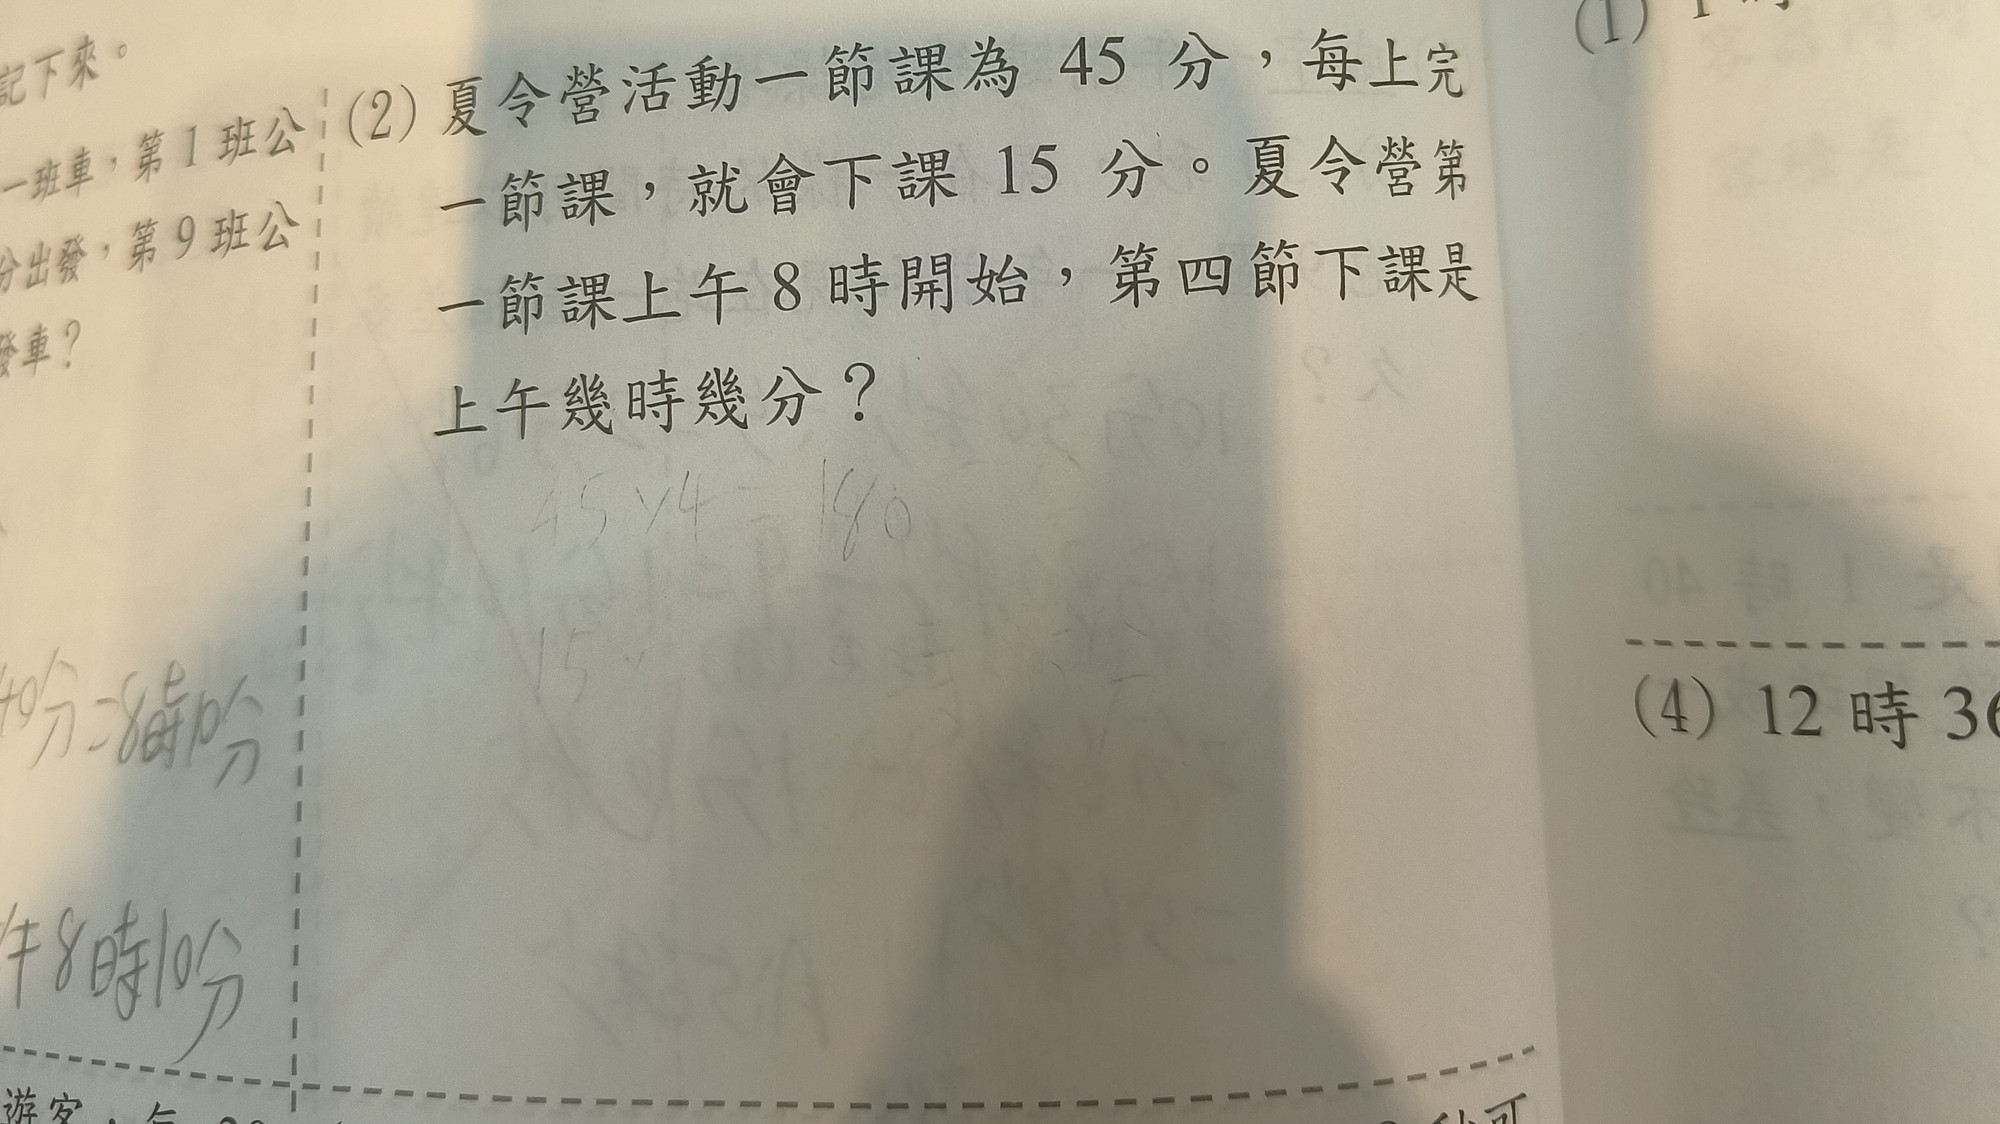 記下來。
一班車，第1班公
分出發，第9班公
發車？
40分=8時10分
午8時10分
遊客，每
(2) 夏令營活動一節課為 45 分，每上完
一節課，就會下課 15 分。夏令營第
一節課上午 8 時開始，第四節下課是
上午幾時幾分？
45×4=180
15×
(1) 1 時
(4) 12 時 36